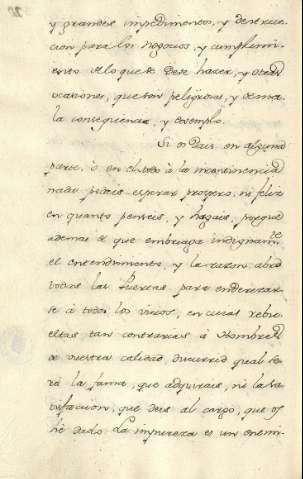 y grandes impedimentos, y destruc-
cion para los negocios, y cumplimi-
ento de lo que se deve hacer, y otras
ocasiones, que son peligrosas, y de ma-
la consequencia, y exemplo.
Si os Dais en alguna
parte, ò en el todo à la incontinencia
nada podeis esperar prospero, ni feliz
en quanto penseis, y hagais, porque
ademas de que embriaga indignam.te
el entendimiento, y la razon, abate
todas las fuerzas para enderezar-
se à todos los vicios, en cuias rebu-
eltas tan contrarias à Hombre
de vuestra calidad discurrid qual se-
rà la fama, que adquirais, ni la sa-
tisfacion, que deis al cargo, que os
hè dado. La impureza es un enemi-